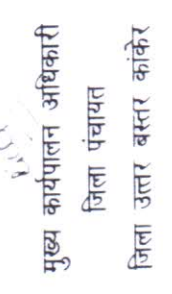 मुख्य कार्यपालन अधिकारी
जिला पंचायत
जिला उत्तर बस्तर कांकेर